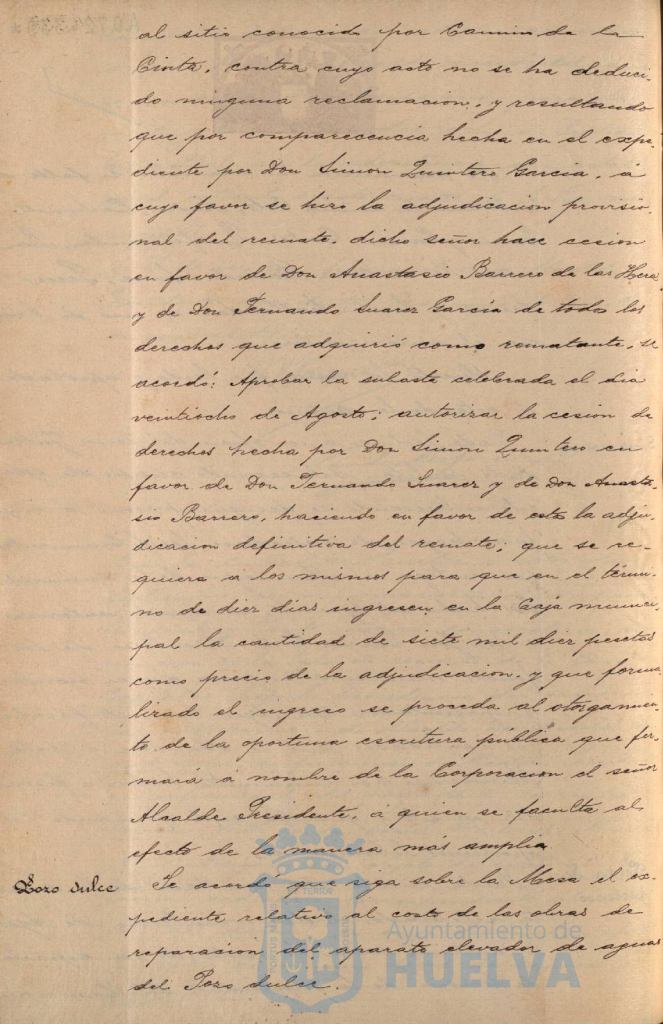 al sitio conocido por Camino de la
Cinta, contra cuyo acto no se ha deduci-
do ninguna reclamacion, y resultando
que por comparecencia hecha en el expe-
diente por Don Simon Quintero Garcia, á
cuyo favor se hizo la adjudicacion provisio-
nal del remate, dicho señor hace cesion
en favor de Don Anastasio Barrero de las Heras
y de Don Fernando Suarez García de todos los
derechos que adquirió como rematante, se
acordó: Aprobar la subasta celebrada el dia
veintiocho de Agosto; autorizar la cesion de
derechos hecha por Don Simon Quintero en
favor de Don Fernando Suarez y de Don Anasta-
sio Barrero, haciendo en favor de estos la adju-
dicacion definitiva del remate; que se re-
quiera á los mismos para que en el térmi-
no de diez dias ingresen en la Caja munici-
pal la cantidad de siete mil diez pesetas
como precio de la adjudicacion, y que forma-
lizado el ingreso se proceda al otorgamien-
to de la oportuna escritura pública que fir-
mará á nombre de la Corporacion el señor
Alcalde Presidente, á quien se faculta al
efecto de la manera más amplia
Pozo dulce Se acordó que siga sobre la Mesa el ex-
pediente relativo al costo de las obras de
reparacion del aparato elevador de aguas
del Pozo dulce.
Ayuntamiento de
HUELVA